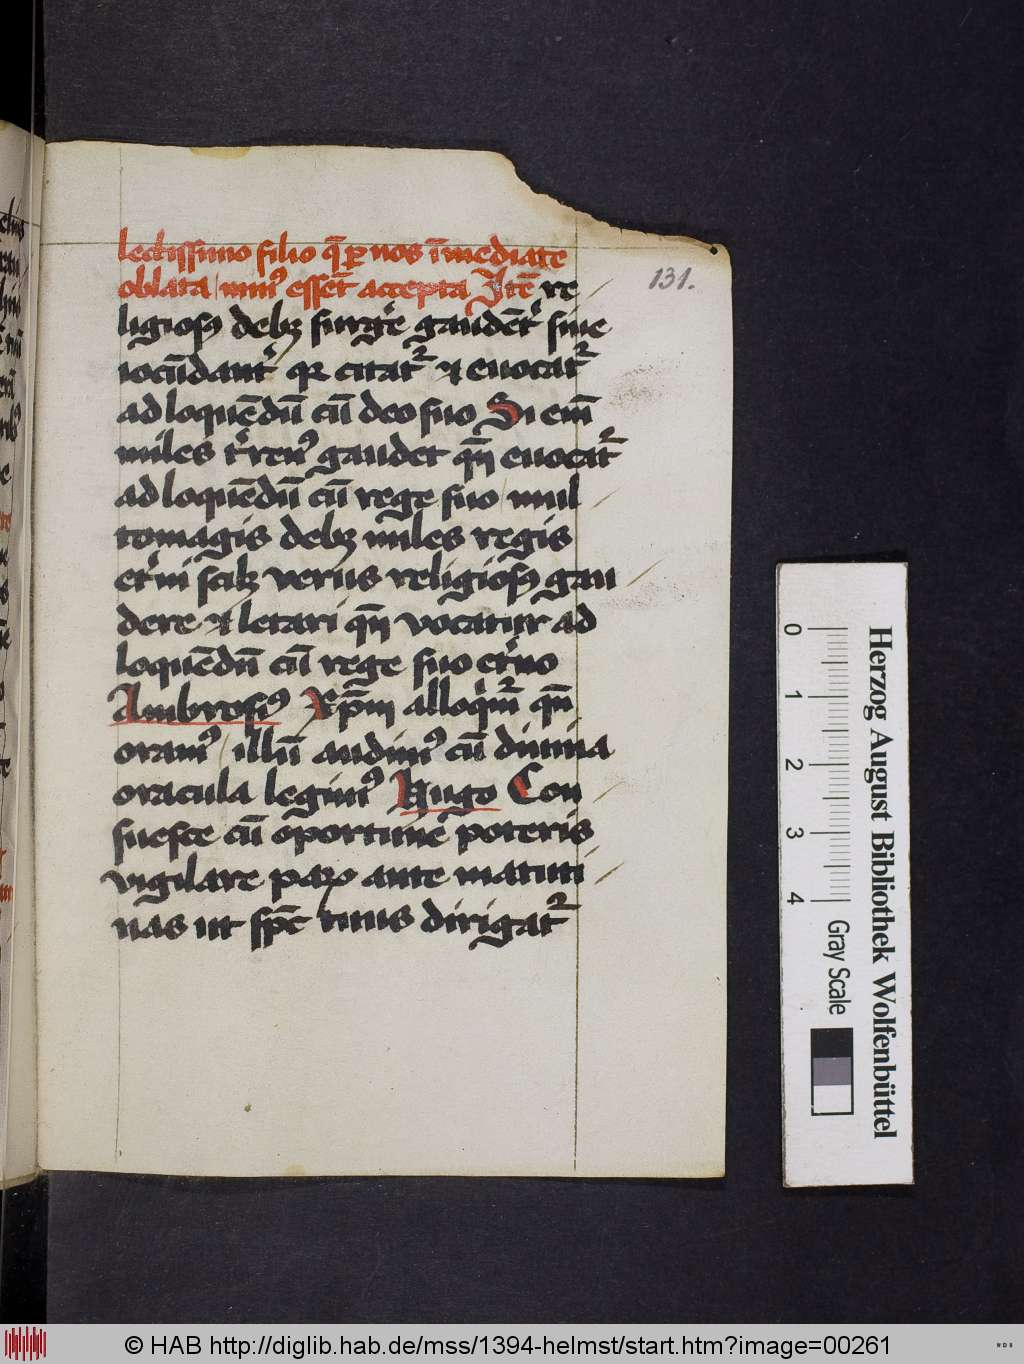 lectissimo filio q̄ ꝑ nos īmediate
oblata minꝰ essēt accepta Itē re
ligiosꝰ debꝫ surgͤe gaudēt͛ siue
iocūdant͛ qꝛ citatᷣ ⁊ euocatᷣ
ad loquēdū cū deo suo Si em̄
miles t͛renꝰ gaudet qn̄ euocatᷣ
ad loquēdū cū rege suo mul
tomagis debꝫ miles regis
et͛ni scilꝫ verus religiosꝰ gau
dere ⁊ letari qn̄ vocatur ad
loquēdū cū rege suo et͛no
Ambrosiꝰ Xp̄m alloqͥmᷣ qn̄
oramꝰ illū audimꝰ cū diuina
oracula legimꝰ Hugo Con
suesce cū oportune poteris
vigilare paꝝ ante matuti
nas ut sp̄c tuus dirigatᷣ
131.
Herzog August Bibliothek Wolfenbüttel
0 1 2 3 4 Gray Scale
© HAB http://diglib.hab.de/mss/1394-helmst/start.htm?image=00261